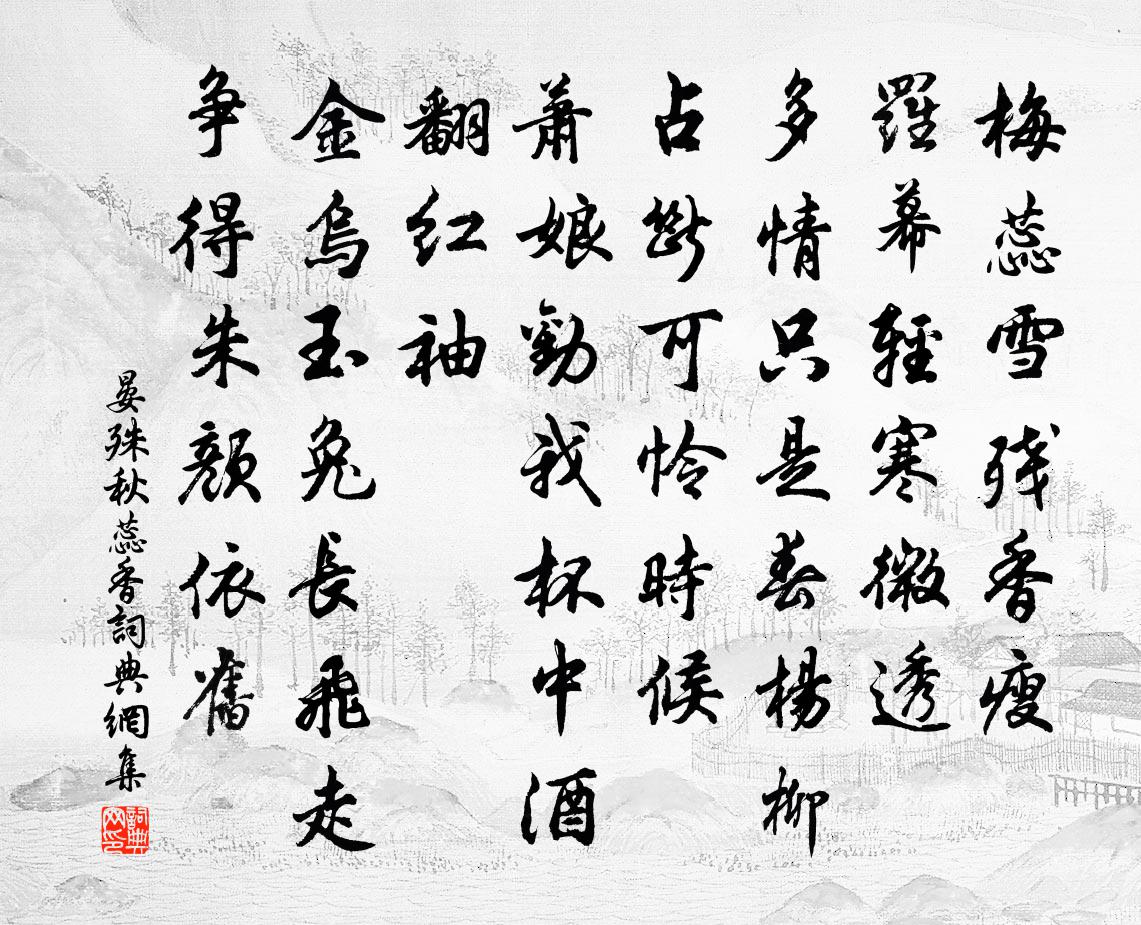 梅蕊雪残香瘦
羅幕輕寒微透
多情只是春楊柳
占斷可怜時候
萧娘勸我杯中酒
翻红袖
金烏玉兔長飛走
争得朱颜依舊
晏殊秋蕊香詞典網集
詞典网印